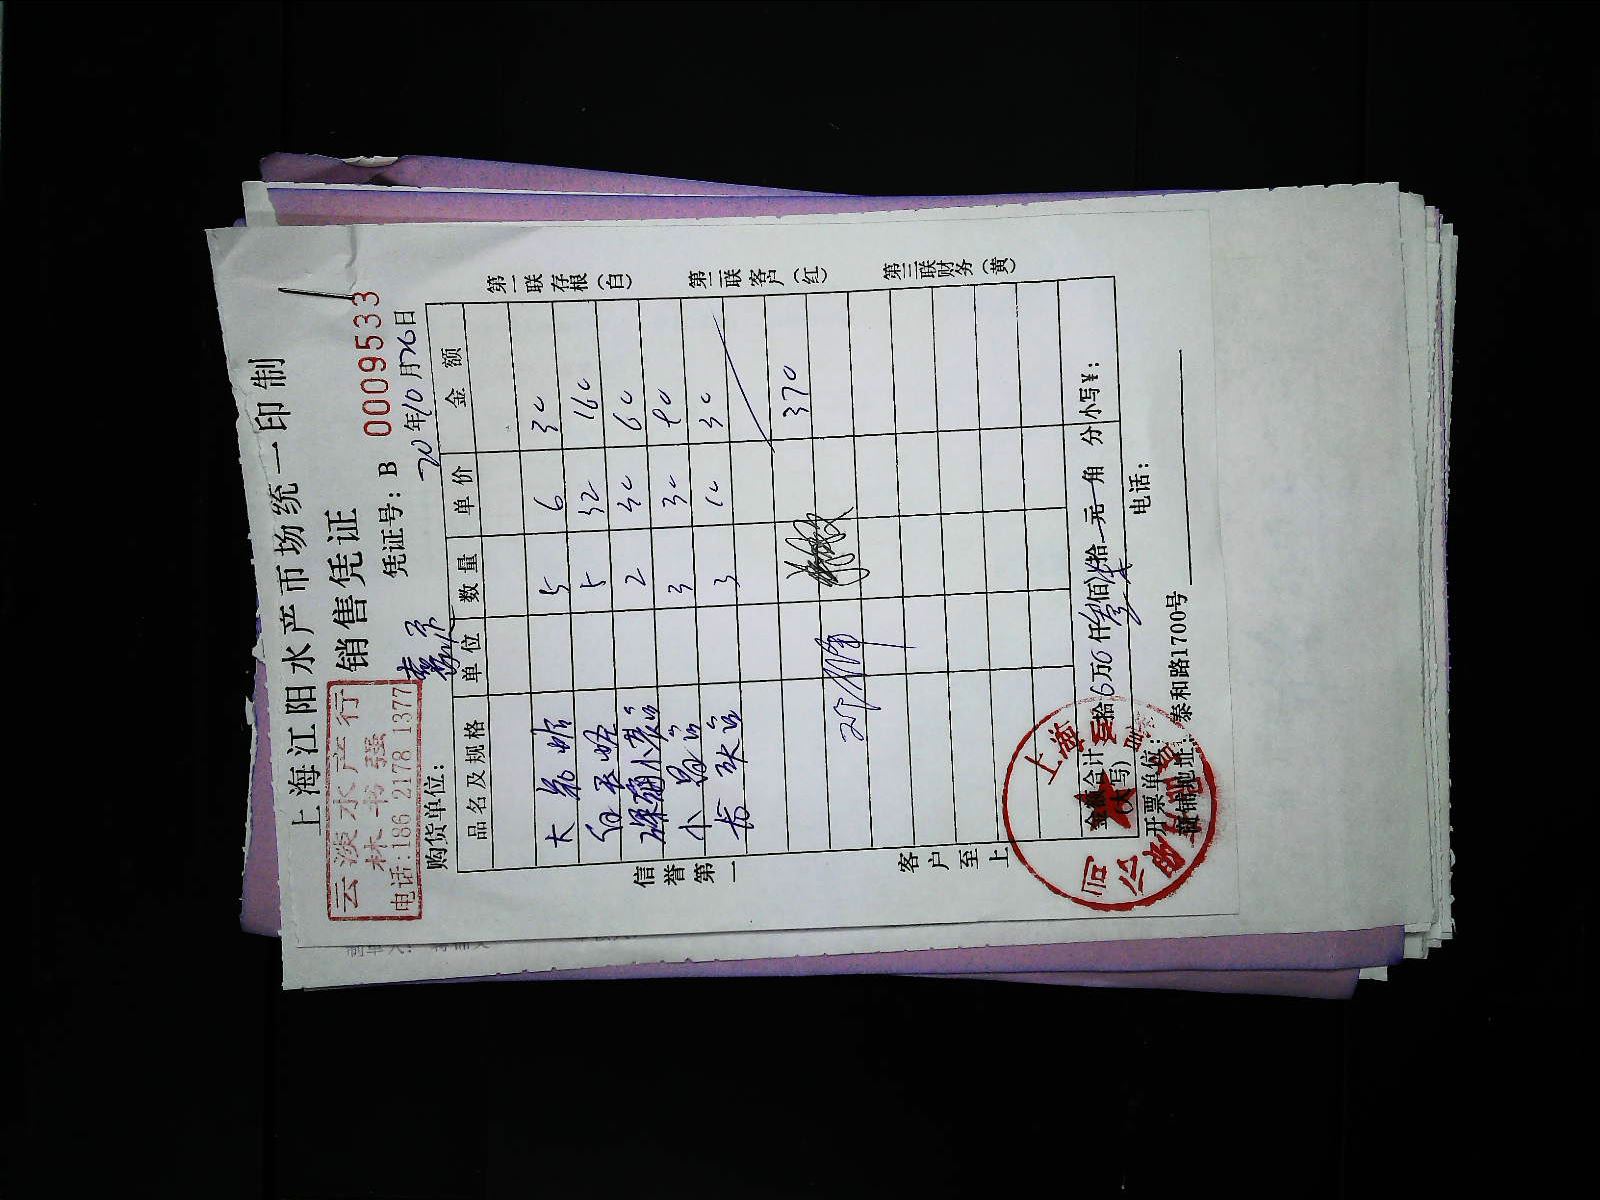 上海江阳水产市场统一印制
销售凭证
云淡水产行
林书强
电话:186 2178 1377
凭证号：B 0009533
购货单位：
20年10月26日
品名及规格 单位 数量 单价 金额
大 5 6 30
5 32 160
2 30 60
小 3 30 90
3 10 30
370
金额合计
(大写) 拾 万 仟 佰 拾 元 角 分 小写¥：
开票单位： 电话：
商铺地址：泰和路1700号
信誉第一
客户至上
第一联存根(白)
第二联客户(红)
第三联财务(黄)
上海
公司